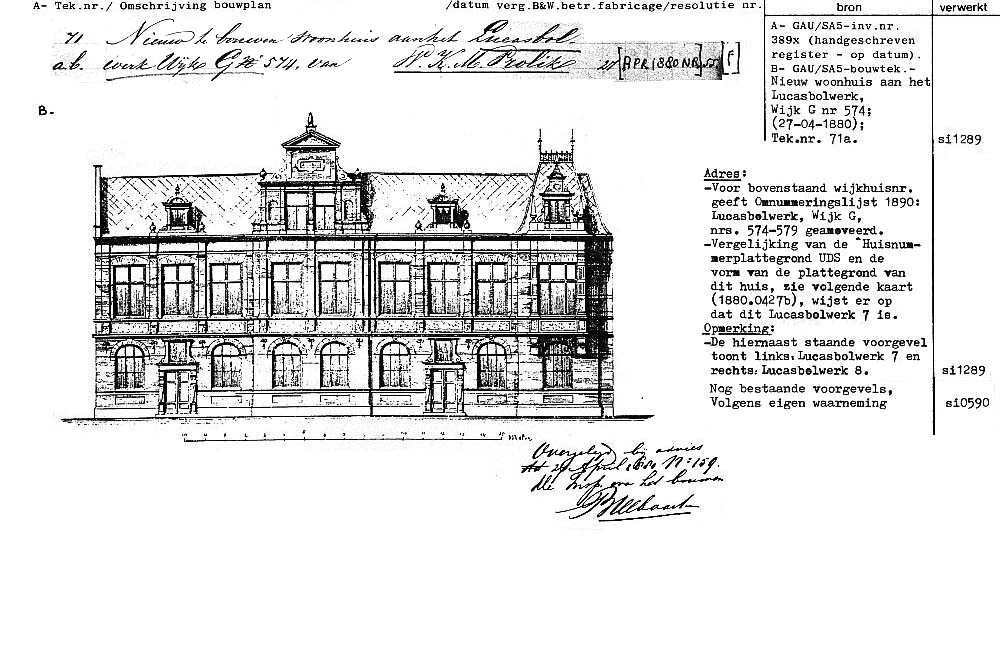 A- Tek.nr./ Omschrijving bouwplan /datum verg.B&W.betr.fabricage/resolutie nr. bron verwerkt
71 Nieuw te bouwen woonhuis aan het Lucasbol-
a.b. werk Wijk G No 574, van W. K. M. 27 [APR 1880 NR 55 [f]
A- GAU/SA5-inv.nr.
389x (handgeschreven
register - op datum).
B- GAU/SA5-bouwtek.-
Nieuw woonhuis aan het
Lucasbolwerk,
Wijk G nr 574;
(27-04-1880);
Tek.nr. 71a. si1289
B-
Adres:
-Voor bovenstaand wijkhuisnr.
geeft Omnummeringslijst 1890:
Lucasbolwerk, Wijk G,
nrs. 574-579 geamoveerd.
-Vergelijking van de "Huisnum-
merplattegrond UDS en de
vorm van de plattegrond van
dit huis, zie volgende kaart
(1880.0427b), wijst er op
dat dit Lucasbolwerk 7 is.
Opmerking:
-De hiernaast staande voorgevel
toont links: Lucasbolwerk 7 en
rechts: Lucasbolwerk 8. si1289
Nog bestaande voorgevels,
Volgens eigen waarneming si0590
Overgelegd bij advies
dd 27 April 1880 No: 159.
de Insp. van het bouwen